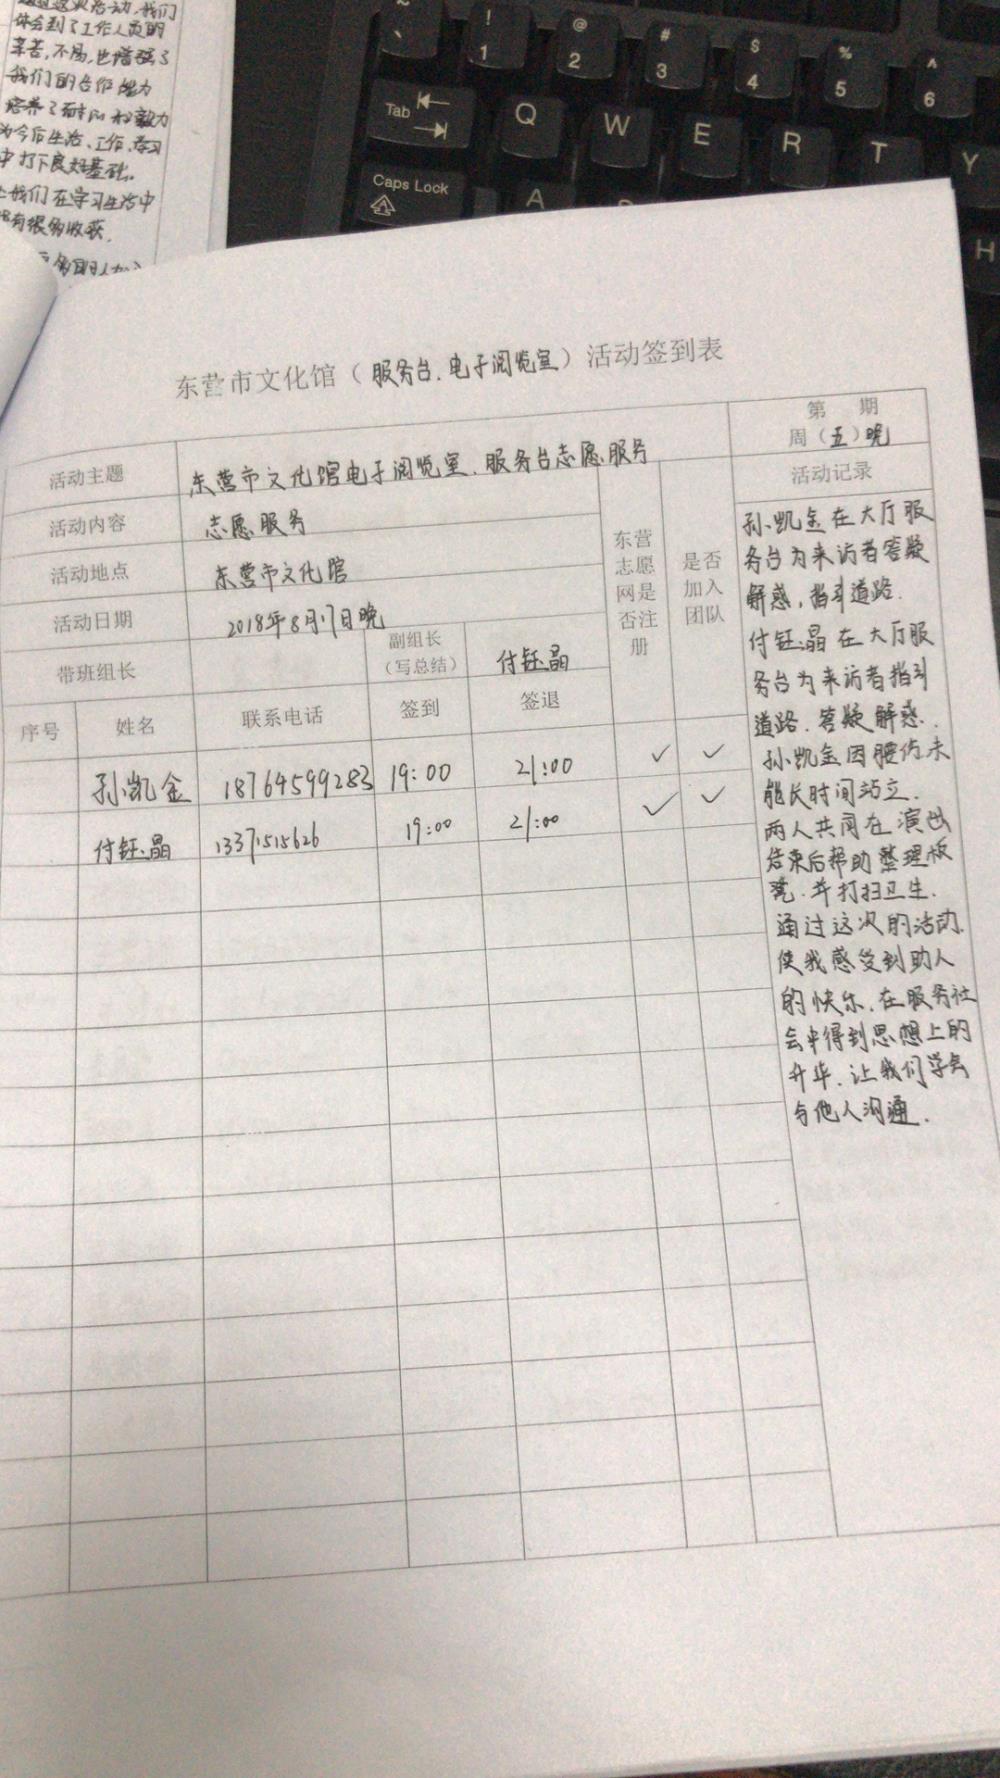 体会到了工作人员的
辛苦,不易,也增强了
我们的合作能力
培养了耐心和毅力
为今后生活、工作、学习
中打下良好基础。
让我们在学习生活中
有很多收获.
~
`
!
1
@
2
#
3
$
4
%
5
^
6
Tab
Q
W
E
R
T
Y
Caps Lock
A
H
东营市文化馆(服务台.电子阅览室)活动签到表
第 期
周(五)晚
活动主题
东营市文化馆电子阅览室.服务台志愿服务
活动内容
志愿服务
活动地点
东营市文化馆
活动日期
2018年8月17日晚
带班组长
副组长
(写总结)
付钰晶
东营
志愿
网是
否注
册
是否
加入
团队
活动记录
序号 姓名 联系电话 签到 签退
孙凯金 18764599283 19:00 21:00 ✓ ✓
付钰晶 13371515626 19:00 21:00 ✓ ✓
孙凯金在大厅服
务台为来访者答疑
解惑,指引道路.
付钰晶在大厅服
务台为来访者指引
道路.答疑解惑.
孙凯金因腰伤未
能长时间站立.
两人共同在演出
结束后帮助整理板
凳.并打扫卫生.
通过这次的活动.
使我感受到助人
的快乐.在服务社
会中得到思想上的
升华.让我们学会
与他人沟通.